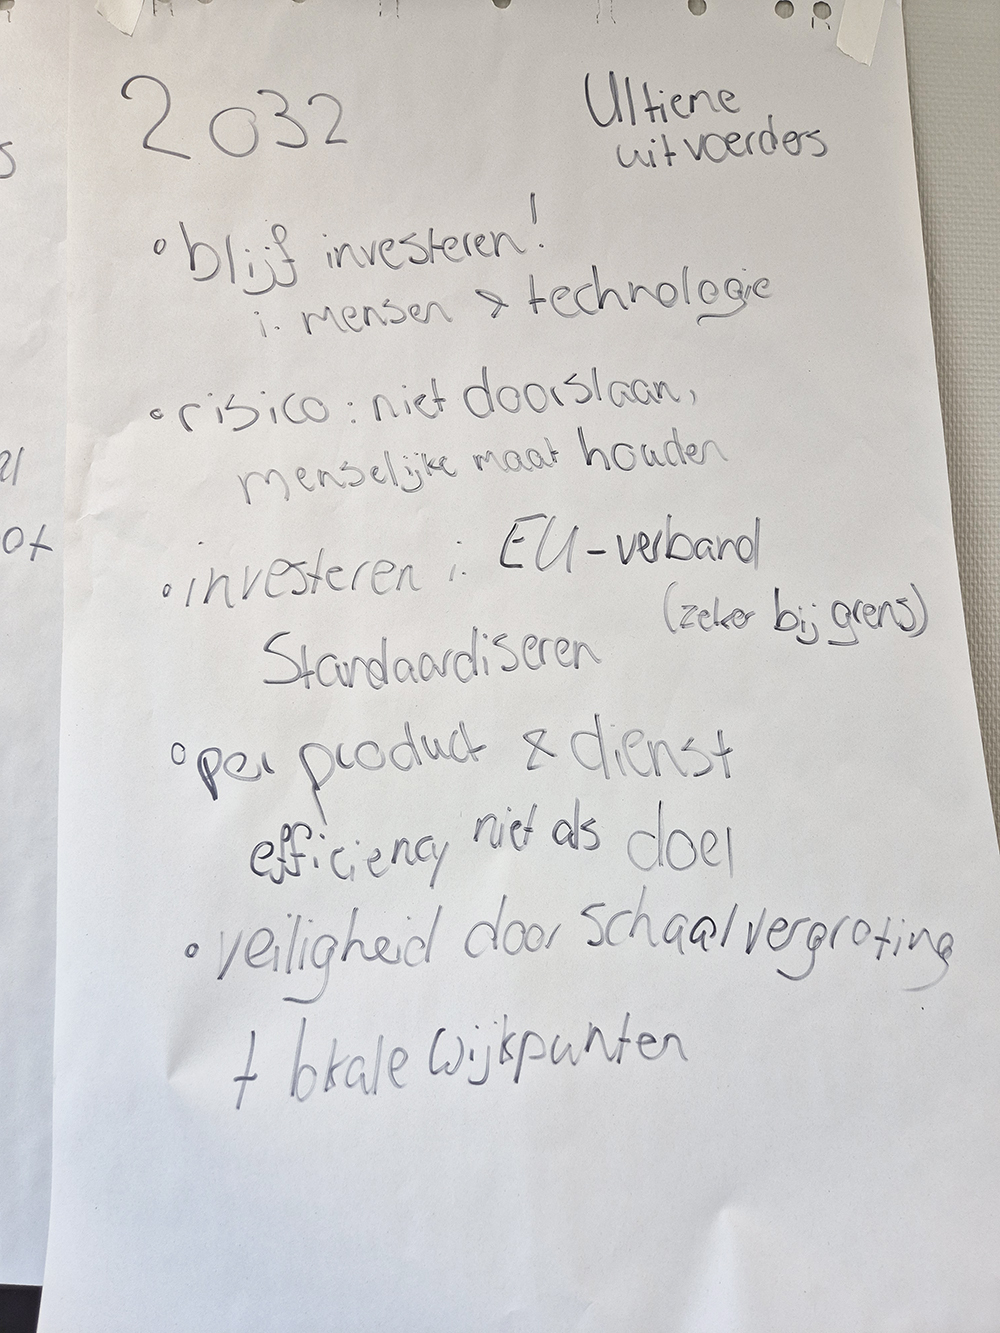 2032
Ultieme
uitvoerders
• blijf investeren!
i. mensen & technologie
• risico: niet doorslaan,
menselijke maat houden
• investeren i. EU-verband
(zeker bij grens)
Standaardiseren
• per product & dienst
efficiency niet als doel
• veiligheid door schaalvergroting
+ lokale wijkpunten